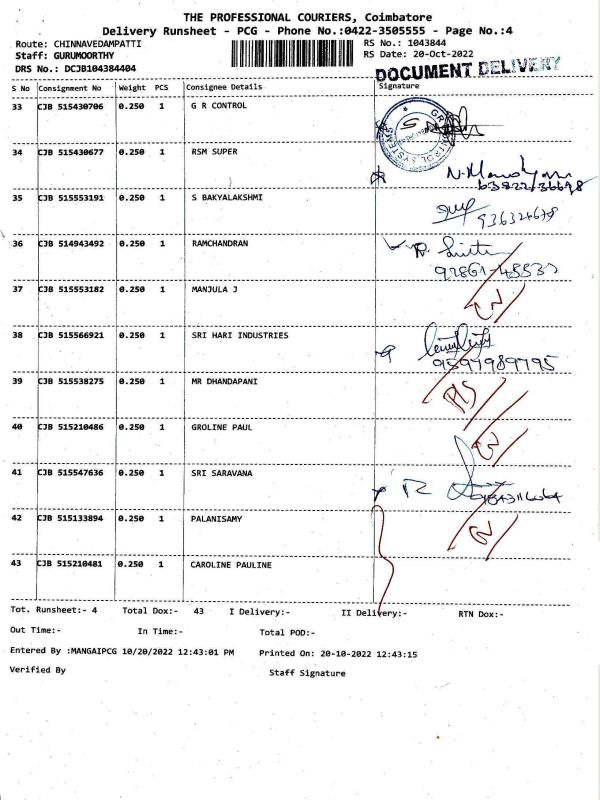 THE PROFESSIONAL COURIERS, Coimbatore
Delivery Runsheet - PCG - Phone No.:0422-3505555 - Page No.:4
Route: CHINNAVEDAMPATTI RS No.: 1043844
Staff: GURUMOORTHY RS Date: 20-Oct-2022
DRS No.: DCJB104384404 DOCUMENT DELIVERY
S No Consignment No Weight PCS Consignee Details Signature
33 CJB 515430706 0.250 1 G R CONTROL
34 CJB 515430677 0.250 1 RSM SUPER
35 CJB 515553191 0.250 1 S BAKYALAKSHMI
36 CJB 514943492 0.250 1 RAMCHANDRAN
37 CJB 515553182 0.250 1 MANJULA J
38 CJB 515566921 0.250 1 SRI HARI INDUSTRIES
9597989795
39 CJB 515538275 0.250 1 MR DHANDAPANI
40 CJB 515210486 0.250 1 GROLINE PAUL
41 CJB 515547636 0.250 1 SRI SARAVANA
42 CJB 515133894 0.250 1 PALANISAMY
43 CJB 515210481 0.250 1 CAROLINE PAULINE
Tot. Runsheet:- 4 Total Dox:- 43 I Delivery:- II Delivery:- RTN Dox:-
Out Time:- In Time:- Total POD:-
Entered By :MANGAIPCG 10/20/2022 12:43:01 PM Printed On: 20-10-2022 12:43:15
Verified By Staff Signature